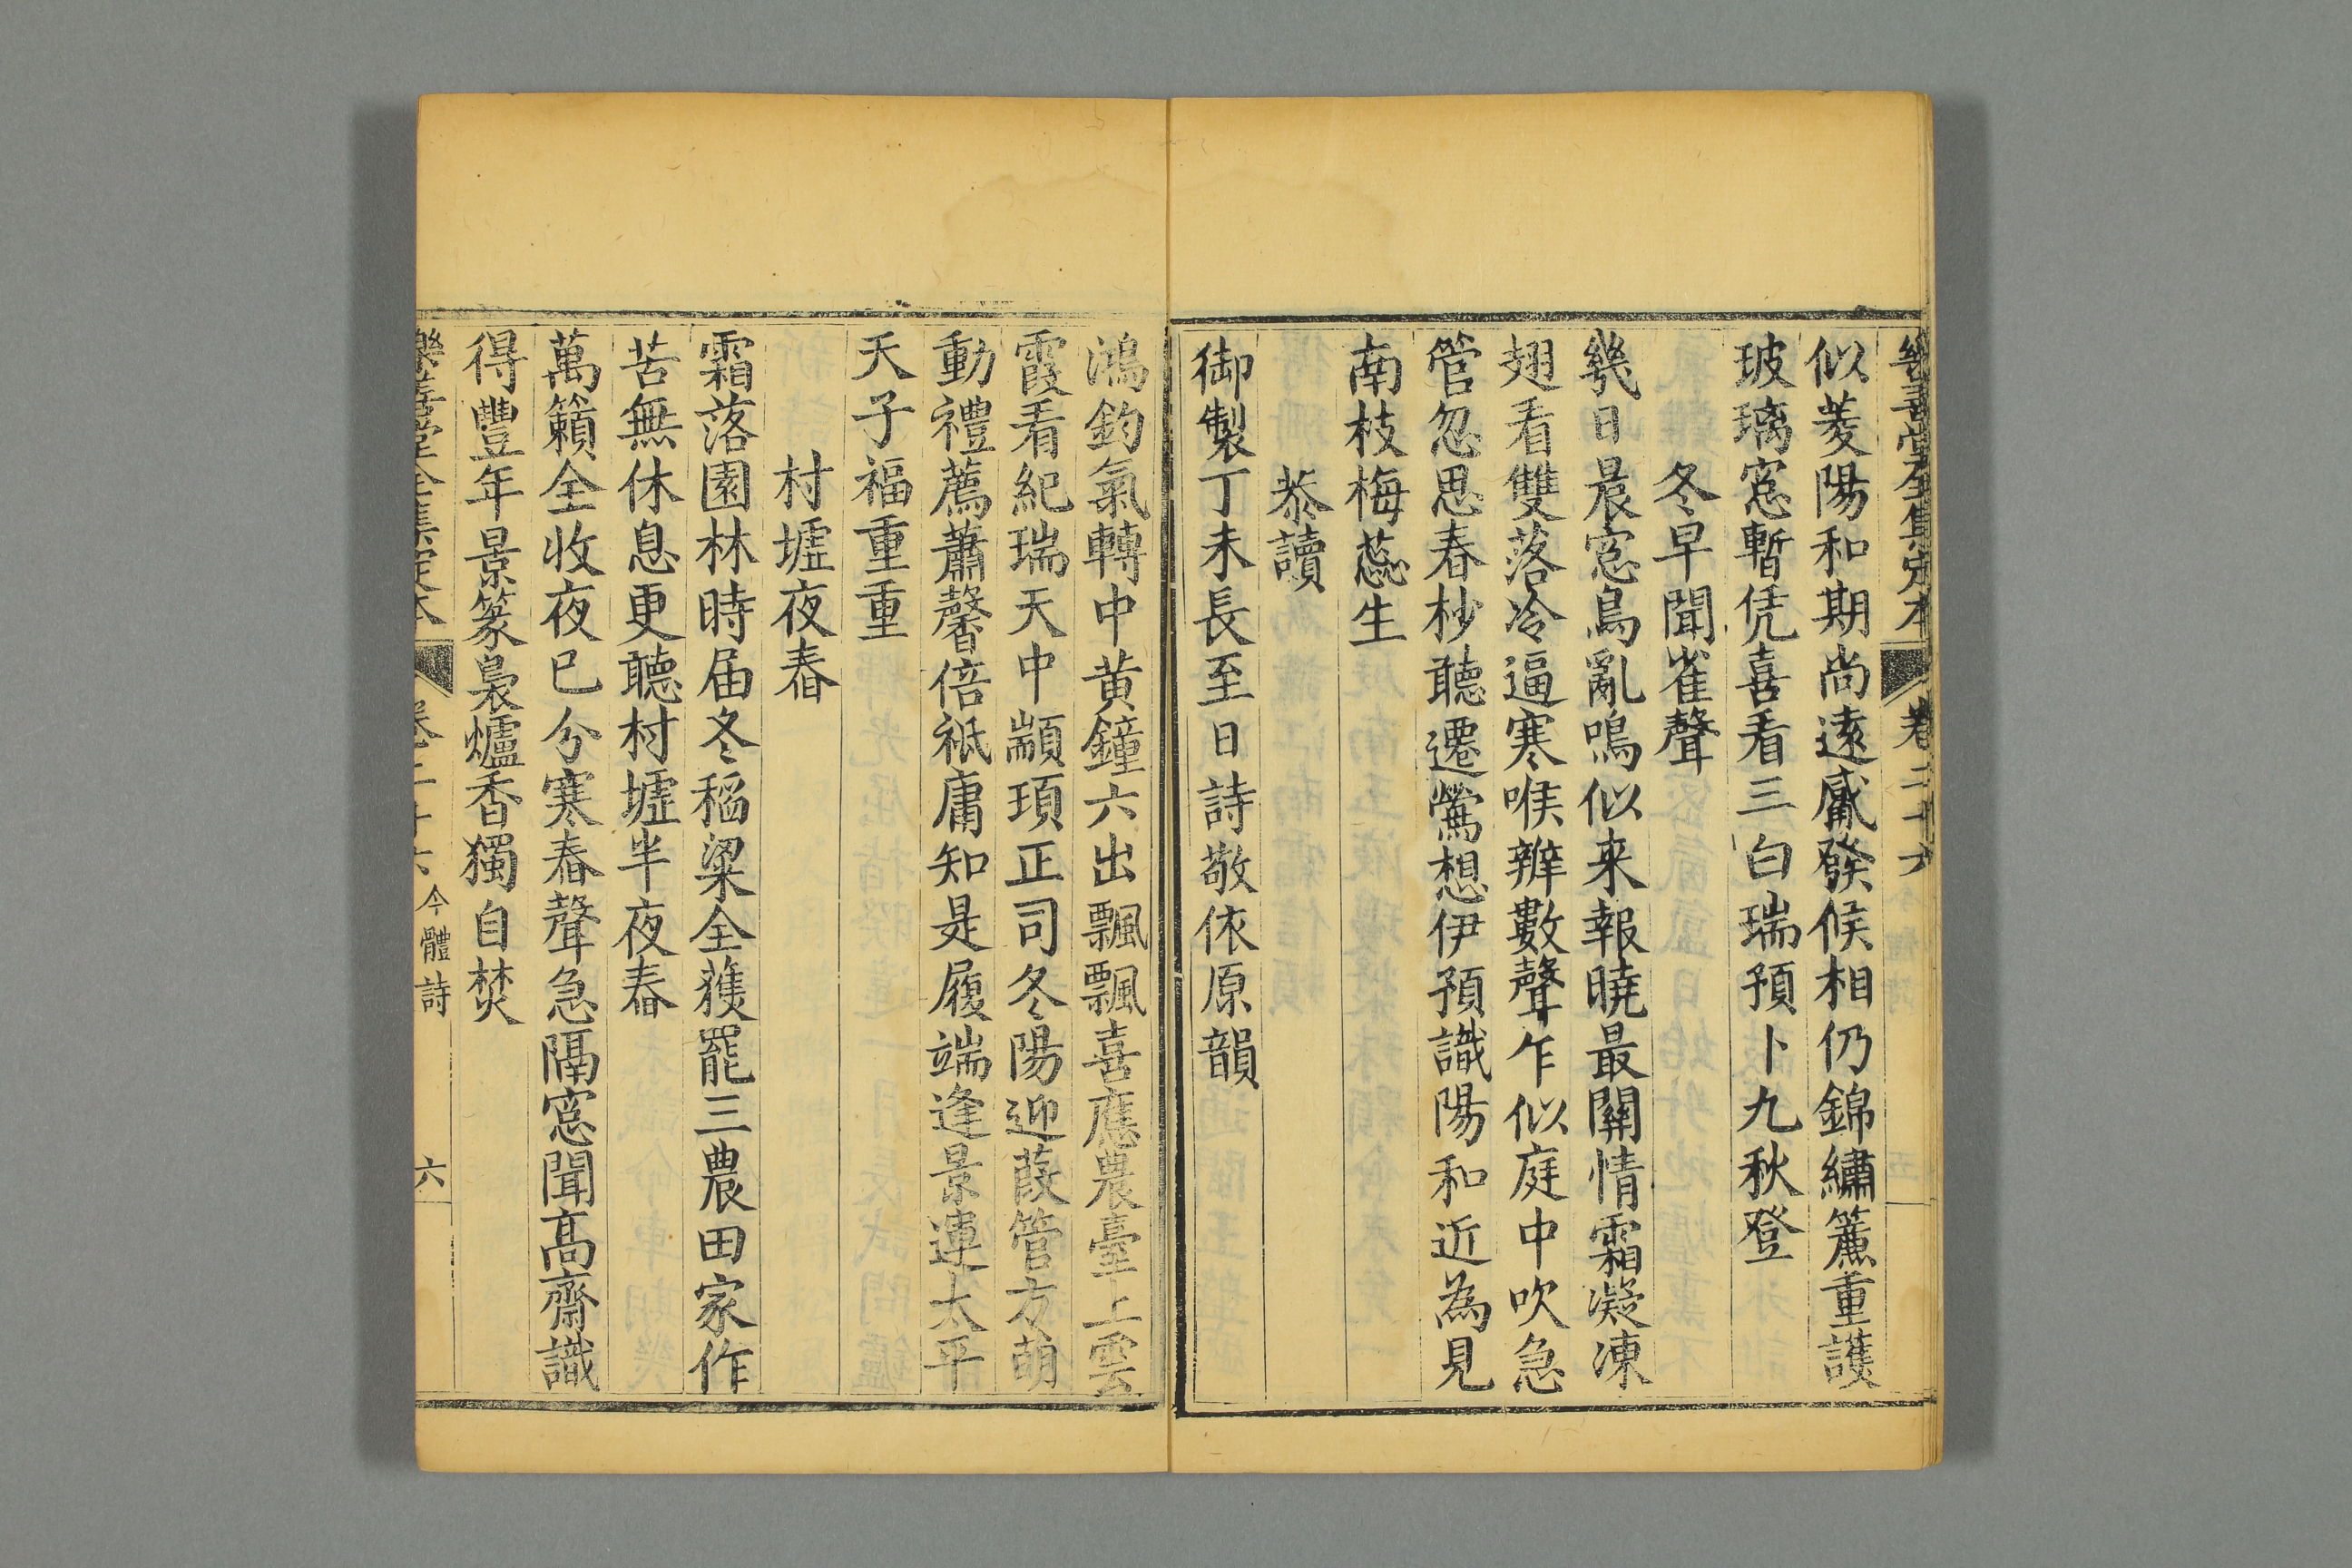 樂善堂全集定本 卷二十六
似菱陽和期尚遠觱發候相仍錦繡簾重護
玻璃窓暫凭喜看三白瑞預卜九秋登
冬早聞雀聲
幾日晨窓鳥亂鳴似来報曉最關情霜凝凍
翅看雙落冷逼寒喉辧數聲乍似庭中吹急
管忽思春杪聽遷鶯想伊預識陽和近為見
南枝梅蕊生
恭讀
御製丁未長至日詩敬依原韻
鴻鈞氣轉中黄鐘六出飄飄喜應農臺上雲
霞看紀瑞天中顓頊正司冬陽迎葭管方萌
動禮薦蕭馨倍祗庸知是履端逢景運太平
天子福重重
村墟夜舂
霜落園林時届冬稻粱全穫罷三農田家作
苦無休息更聽村墟半夜舂
萬籟全收夜已分寒舂聲急隔窓聞髙齋識
得豐年景篆裊爐香獨自焚
樂善堂全集定本 卷二十六 今體詩 六